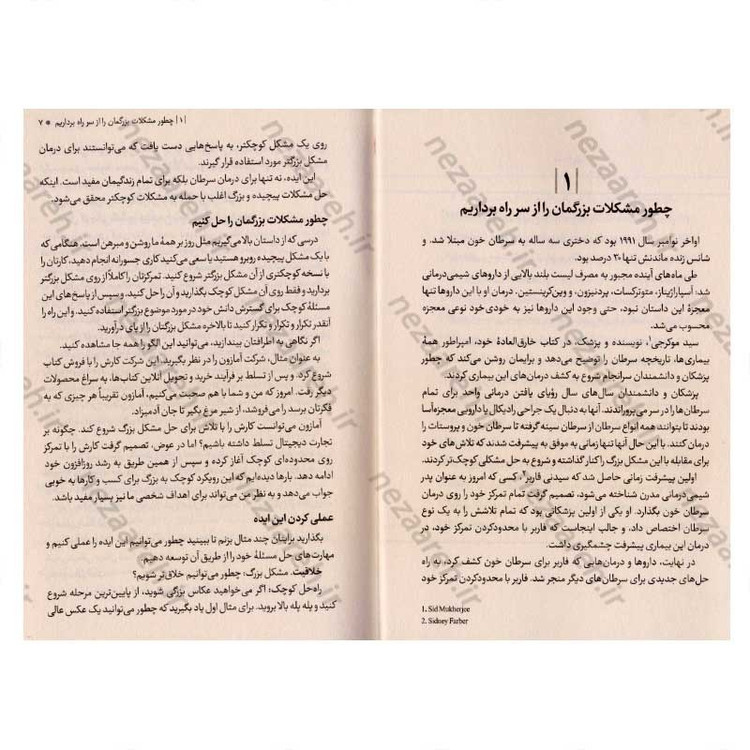 |۱|
چطور مشکلات بزرگمان را از سر راه برداریم
اواخر نوامبر سال ۱۹۹۱ بود که دختری سه ساله به سرطان خون مبتلا شد. و
شانس زنده ماندنش تنها ۲۰ درصد بود.
طی ماه‌های آینده مجبور به مصرف لیست بلند بالایی از داروهای شیمی‌درمانی
شد: آسپاراژیناز، متوترکسات، پردنیزون، و وین‌کریستین. درمان او با این داروها تنها
معجزه این داستان نبود، حتی وجود این داروها نیز به خودی‌خود نوعی معجزه
محسوب می‌شد.
سید موکرجی۱، نویسنده و پزشک، در کتاب خارق‌العادهٔ خود، امپراطور همهٔ
بیماری‌ها، تاریخچه سرطان را توضیح می‌دهد و برایمان روشن می‌کند که چطور
پزشکان و دانشمندان سرانجام شروع به کشف درمان‌های این بیماری کردند.
پزشکان و دانشمندان سال‌های سال رؤیای یافتن درمانی واحد برای تمام
سرطان‌ها را در سر می‌پروراندند. آنها به دنبال یک جراحی رادیکال یا دارویی معجزه‌آسا
بودند تا بتوانند همه انواع سرطان از سرطان سینه گرفته تا سرطان خون و پروستات را
درمان کنند. با این حال آنها تنها زمانی به موفق به پیشرفت شدند که تلاش‌های خود
برای مقابله با این مشکل بزرگ را کنار گذاشته و شروع به حل مشکلی کوچک‌تر کردند.
اولین پیشرفت زمانی حاصل شد که سیدنی فاربر۲، کسی که امروز به عنوان پدر
شیمی‌درمانی مدرن شناخته می‌شود، تصمیم گرفت تمام تمرکز خود را روی درمان
سرطان خون بگذارد. او یکی از اولین پزشکانی بود که تمام تلاشش را به یک نوع
سرطان اختصاص داد، و جالب اینجاست که فاربر با محدودکردن تمرکز خود، در
درمان این بیماری پیشرفت چشمگیری داشت.
در نهایت، داروها و درمان‌هایی که فاربر برای سرطان خون کشف کرد، به راه
حل‌های جدیدی برای سرطان‌های دیگر منجر شد. فاربر با محدودکردن تمرکز خود
1. Sid Mukherjee
2. Sidney Farber
|۱| چطور مشکلات بزرگمان را از سر راه برداریم * ۷
روی یک مشکل کوچکتر، به پاسخ‌هایی دست یافت که می‌توانستند برای درمان
مشکل بزرگتر مورد استفاده قرار گیرند.
این ایده، نه تنها برای درمان سرطان بلکه برای تمام زندگیمان مفید است. اینکه
حل مشکلات پیچیده و بزرگ اغلب با حمله به مشکلات کوچکتر محقق می‌شود.
چطور مشکلات بزرگمان را حل کنیم
درسی که از داستان بالا می‌گیریم مثل روز بر همهٔ ما روشن و مبرهن است. هنگامی که
با یک مشکل پیچیده روبرو هستید یا سعی می‌کنید کاری جسورانه انجام دهید، کارتان را
با نسخه کوچکتری از آن مشکل بزرگتر شروع کنید. تمرکزتان را کاملاً از روی مشکل بزرگتر
بردارید و فقط روی آن مشکل کوچک بگذارید و آن را حل کنید. و سپس از پاسخ‌های این
مسئلهٔ کوچک برای گسترش دانش خود در مورد موضوع بزرگتر استفاده کنید. و این راه را
آنقدر تکرار و تکرار و تکرار کنید تا بالاخره مشکل بزرگتان را از پای درآورید.
اگر نگاهی به اطرافتان بیندازید، می‌توانید این الگو را همه جا مشاهده کنید.
به عنوان مثال، شرکت آمازون را در نظر بگیرید. این شرکت کارش را با فروش کتاب
شروع کرد. و پس از تسلط بر فرآیند خرید و تحویل آنلاین کتاب‌ها، به سراغ محصولات
دیگر رفت. امروز که من و شما با هم صحبت می‌کنیم، آمازون تقریباً هر چیزی که به
فکرتان برسد را می‌فروشد، از شیر مرغ بگیر تا جان آدمیزاد.
آمازون می‌توانست کارش را با تلاش برای حل مشکل بزرگ شروع کند. چگونه بر
تجارت دیجیتال تسلط داشته باشیم؟ اما در عوض، تصمیم گرفت کارش را با تمرکز
روی محدوده‌ای کوچک آغاز کرده و سپس از همین طریق به رشد روزافزون خود
ادامه دهد. بارها دیده‌ایم که این رویکرد کوچک به بزرگ برای کسب و کارها به خوبی
جواب می‌دهد و به نظر من می‌تواند برای اهداف شخصی ما نیز بسیار مفید باشد.
عملی کردن این ایده
بگذارید برایتان چند مثال بزنم تا ببینید چطور می‌توانیم این ایده را عملی کنیم و
مهارت‌های حل مسئلهٔ خود را از طریق آن توسعه دهیم
خلاقیت. مشکل بزرگ: چطور می‌توانیم خلاق‌تر شویم؟
راه‌حل کوچک: اگر می‌خواهید عکاس بزرگی شوید، از پایین‌ترین مرحله شروع
کنید و پله پله بالا بروید. برای مثال اول یاد بگیرید که چطور می‌توانید یک عکس عالی
nezaareh.ir